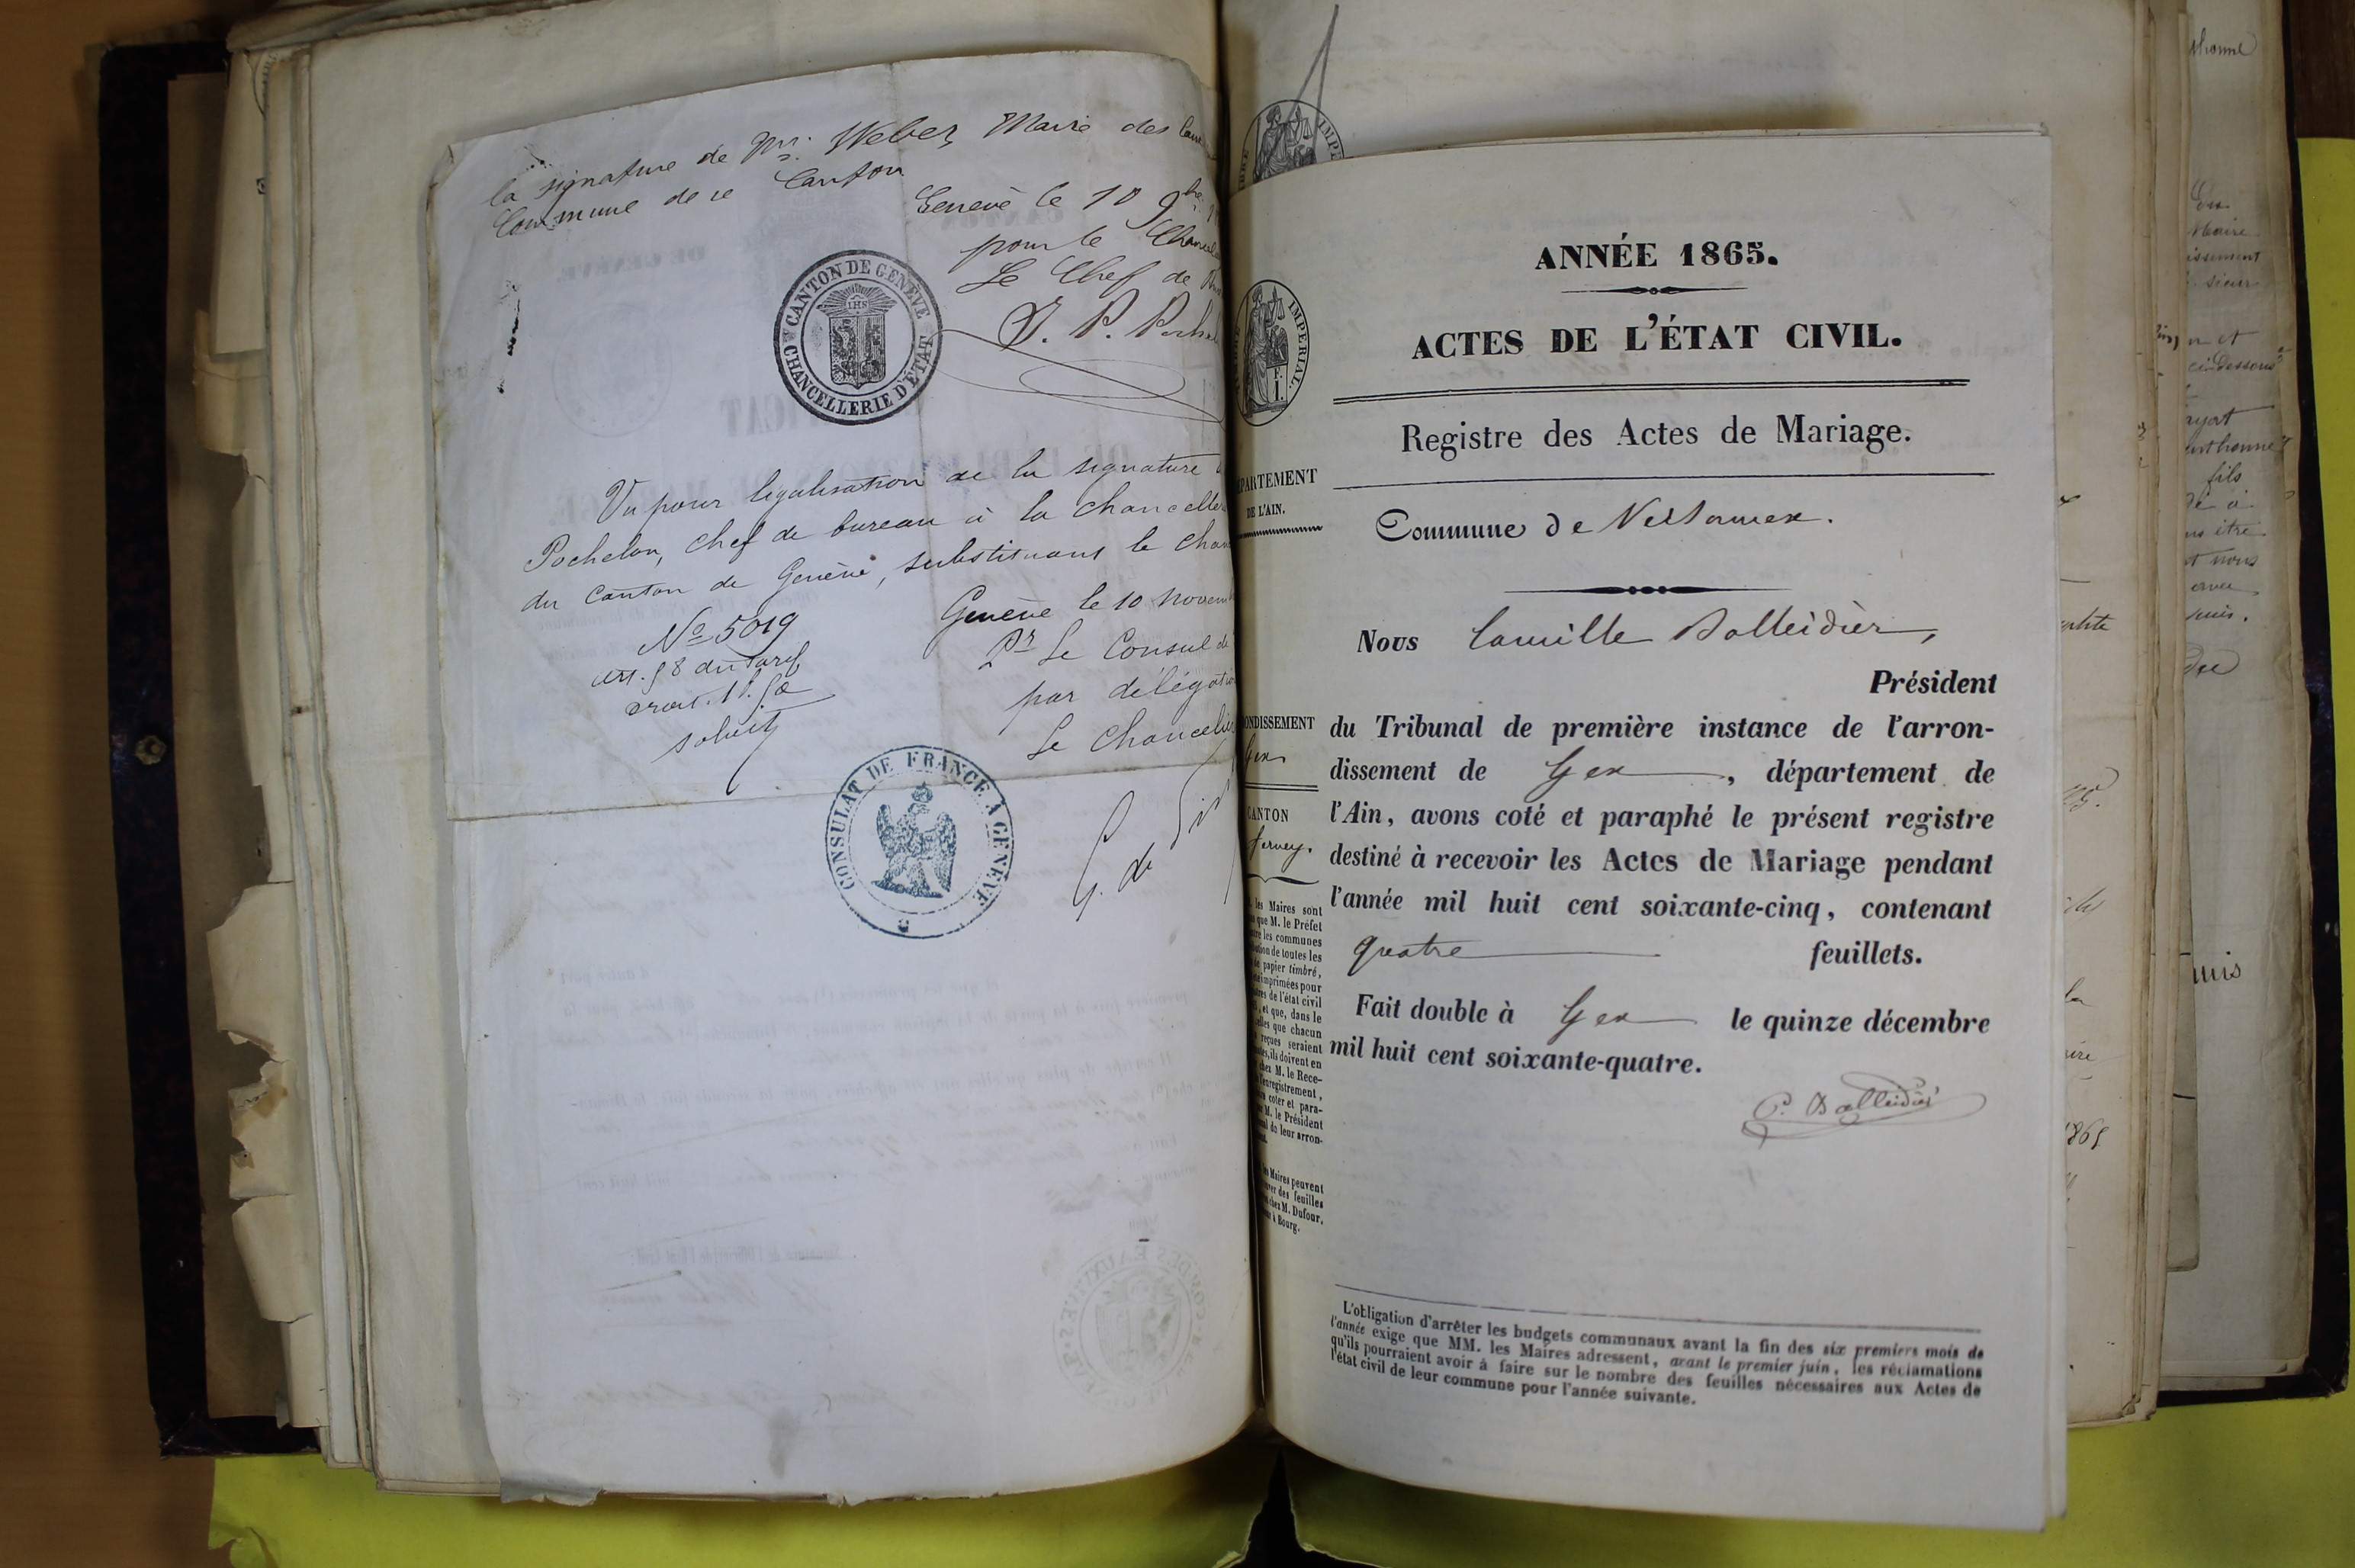 la signature de Mr. Weber, Maire des
Commune de ce Canton
Genève le 10 9bre
pour le
Le Chef de
CANTON DE GENÈVE
CHANCELLERIE D'ÉTAT
IHS
Vu pour légalisation de la signature
Pochelon, chef de bureau à la chancelle
du Canton de Genève, substituant le chan
No 5019
art. 58 du tarif
droit. 1f. 50
Genève le 10 novem
Pr Le Consul de
par délégation
Le Chancelier
G. de
CONSULAT DE FRANCE À GENÈVE
IMPÉRIAL.
ANNÉE 1865.
ACTES DE L'ÉTAT CIVIL.
Registre des Actes de Mariage.
PARTEMENT
DE L'AIN.
Commune de Versonnex.
Nous Camille Balleidier,
Président
du Tribunal de première instance de l'arron-
dissement de Gex, département de
l'Ain, avons coté et paraphé le présent registre
destiné à recevoir les Actes de Mariage pendant
l'année mil huit cent soixante-cinq, contenant
quatre feuillets.
Fait double à Gex le quinze décembre
mil huit cent soixante-quatre.
C. Balleidier
ONDISSEMENT
Gex
CANTON
ferney.
les Maires sont
que M. le Préfet
les communes
de toutes les
papier timbré,
imprimées pour
de l'état civil
, et que, dans le
que chacun
reçues seraient
, ils doivent en
chez M. le Rece-
l'enregistrement,
coter et para-
M. le Président
de leur arron-
Maires peuvent
des feuilles
chez M. Dufour,
à Bourg.
L'obligation d'arrêter les budgets communaux avant la fin des six premiers mois de
l'année exige que MM. les Maires adressent, avant le premier juin, les réclamations
qu'ils pourraient avoir à faire sur le nombre des feuilles nécessaires aux Actes de
l'état civil de leur commune pour l'année suivante.
1865
Maire
issement
fils